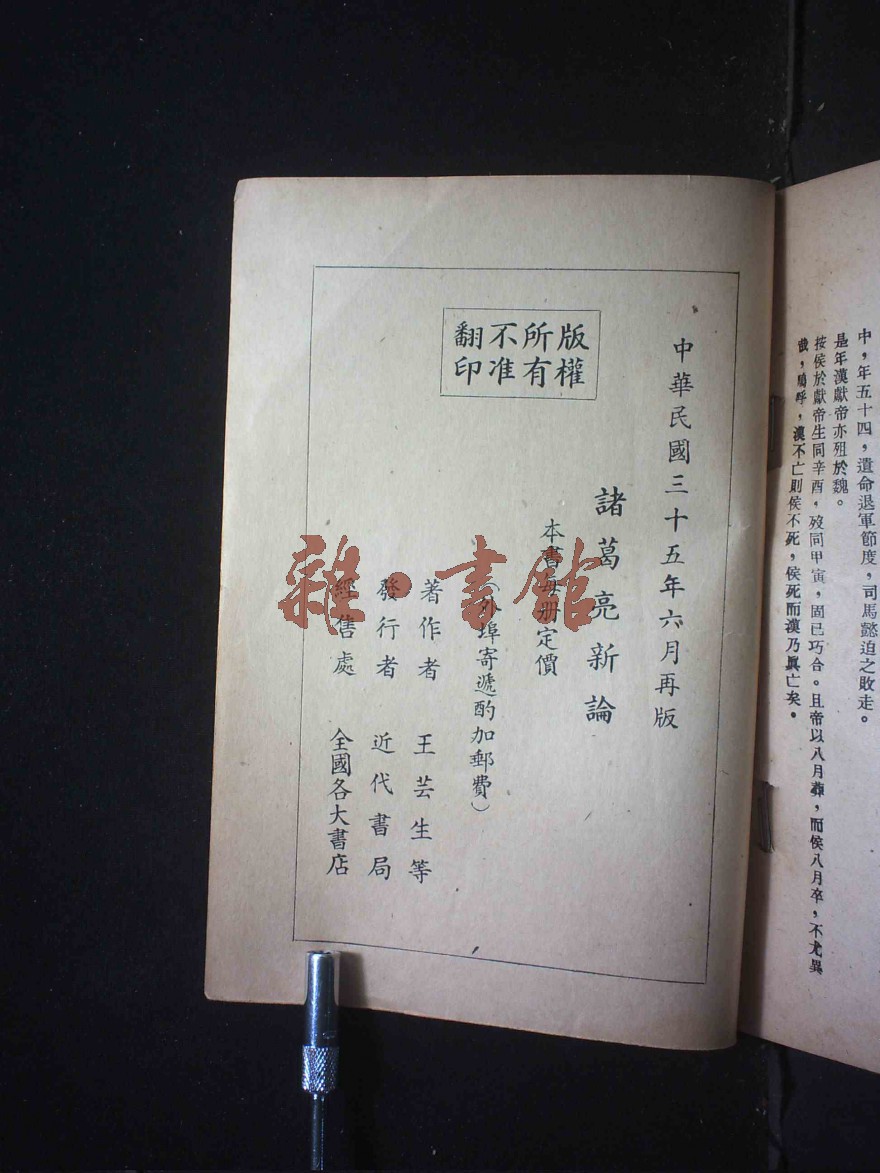 中，年五十四，遺命退軍節度，司馬懿迫之敗走。
是年漢獻帝亦殂於魏。
按侯於獻帝生同辛酉，歿同甲寅，固已巧合。且帝以八月葬，而侯八月卒，不尤異
哉，嗚呼，漢不亡則侯不死，侯死而漢乃眞亡矣。
中華民國三十五年六月再版
版權所有
不准翻印
諸葛亮新論
本書每册定價
（外埠寄遞酌加郵費）
著作者　王芸生等
發行者　近代書局
經售處　全國各大書店
雜·書館